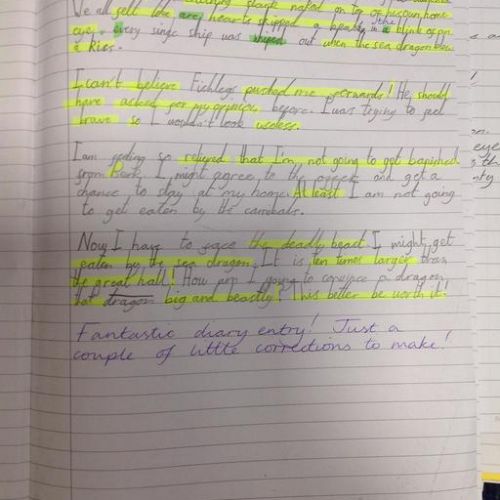 We all fell like are hearts skipped a beat, in a blink of an
eye, every singe ship was wiped out when the sea dragon blew
a kiss.
I can't believe Fishlegs pushed me forwards! He should
have asked for my opinion before. I was trying to feel
brave so I wouldn't look useless.
I am feeling so relieved that I'm not going to get banished
from Berk. I might agree to the offer and get a
chance to stay at my home. At least I am not going
to get eaten by the cannibals.
Now I have to face the deadly beast. I might get
eaten by the sea dragon. It is ten times larger than
the great hall! How am I going to convince a dragon
that dragon big and beastly? This better be worth it!
Fantastic diary entry! Just a
couple of little corrections to make!